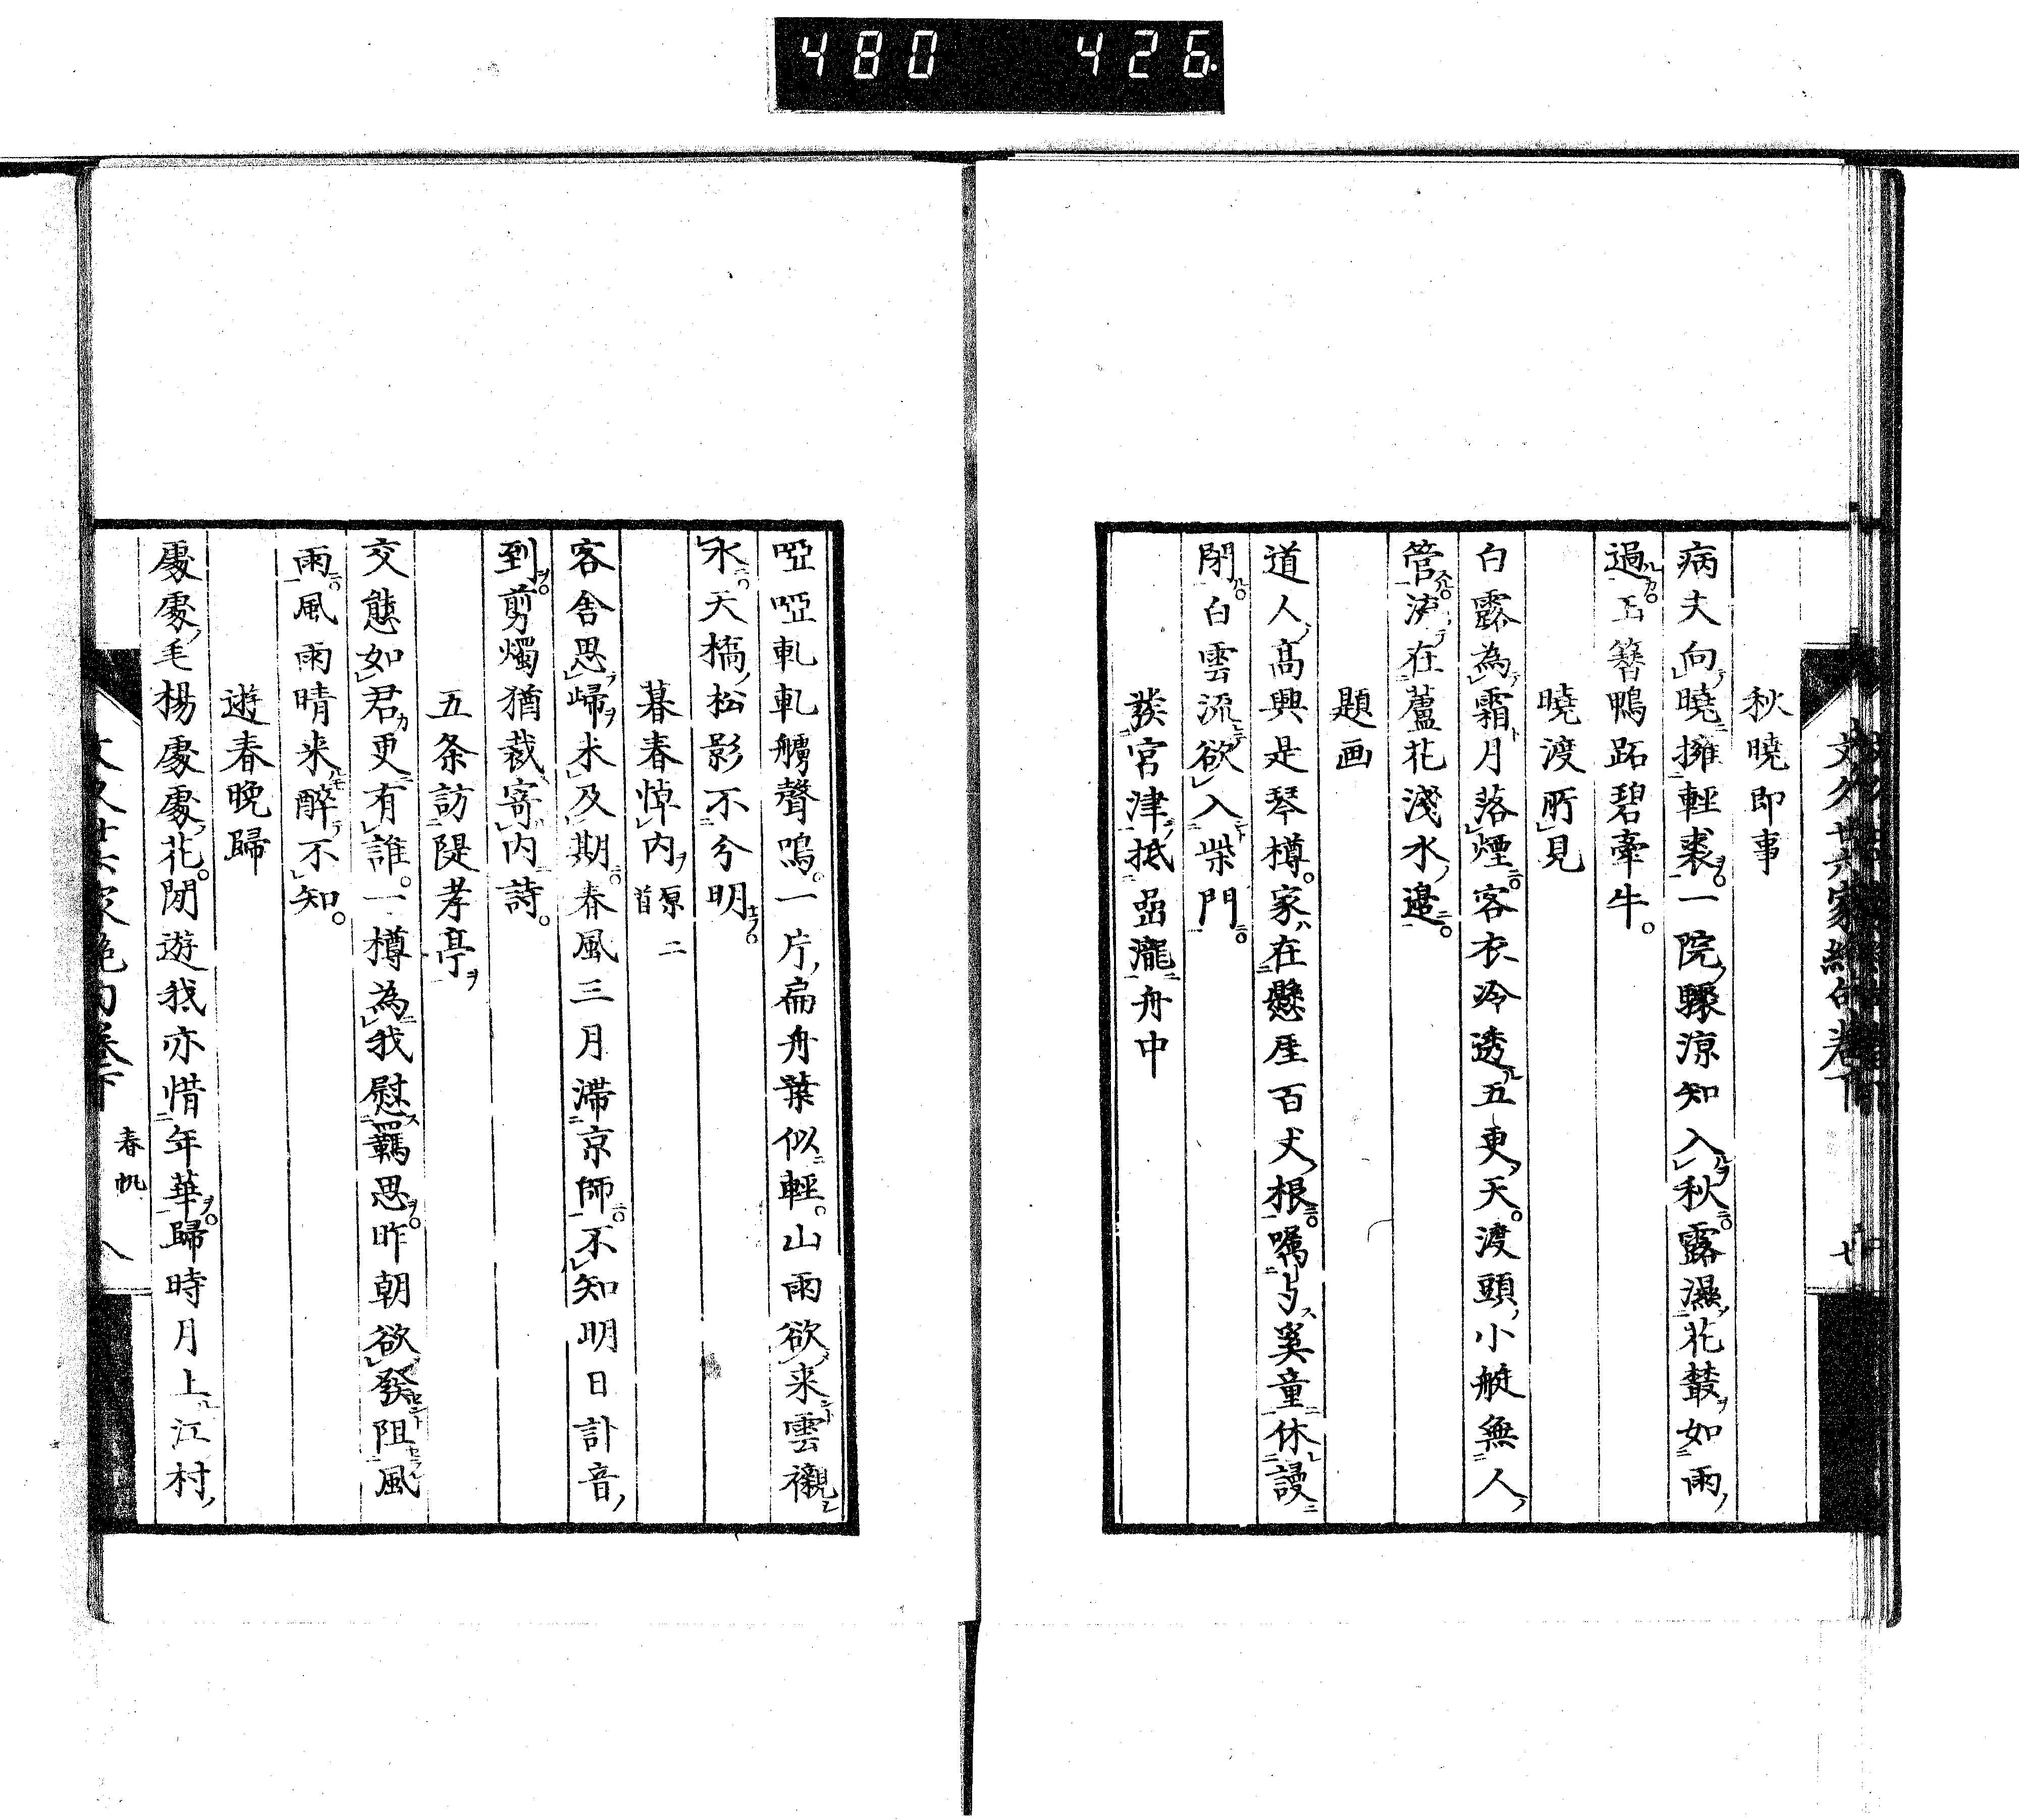 480 426
秋曉即事
病夫向曉擁輕裘一院驟涼知入秋露濕花鬚如雨
過玉簪鴨跖碧牽牛
曉渡所見
白露為霜月落煙客衣冷透五更天渡頭小艇無人
管浮在蘆花淺水邊
題画
道人高興是琴樽家在懸崖百丈根囑与奚童休謾
閉白雲流欲入柴門
發宮津抵嵒瀧舟中
啞啞軋軋艣聲鳴一片扁舟葉似輕山雨欲来雲襯
水天橋松影不分明
暮春悼内 原二首
客舎思歸未及期春風三月滞京師不知明日訃音
到剪燭猶裁寄内詩
五条訪隄孝亭
交態如君更有誰一樽為我慰羈思昨朝欲發阻風
雨風雨晴来醉不知
遊春晩歸
處處毛楊處處花閒遊我亦惜年華歸時月上江村
文久廿六家絶句巻下 春帆 八